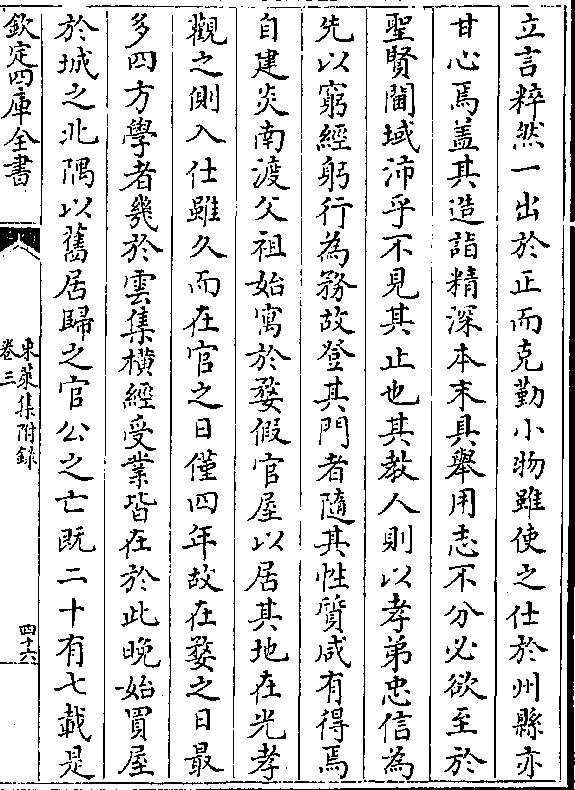 立言粹然一出於正而克勤小物雖使之仕於州縣亦
甘心焉葢其造詣精深本末具舉用志不分必欲至於
聖賢閫域沛乎不見其止也其教人則以孝弟忠信為
先以窮經躬行為務故登其門者隨其性質咸有得焉
自建炎南渡父祖始寓於婺假官屋以居其地在光孝
觀之側入仕雖久而在官之日僅四年故在婺之日最
多四方學者幾於雲集橫經受業皆在於此晚始買屋
於城之北隅以舊居歸之官公之亡既二十有七載是
欽定四庫全書
東萊集附錄
卷三
四十六